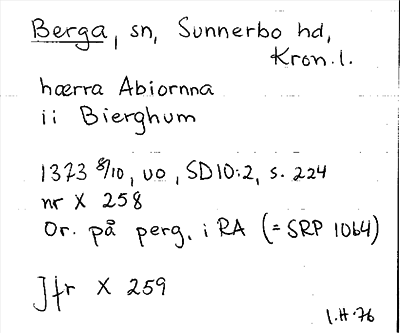 Berga, sn, Sunnerbo hd,
Kron.l.
hærra Abiornna
ii Bierghum
1373 8/10, uo, SD10:2, s. 224
nr X 258
Or. på perg. i RA (= SRP 1064)
Jfr X 259
I.H-76